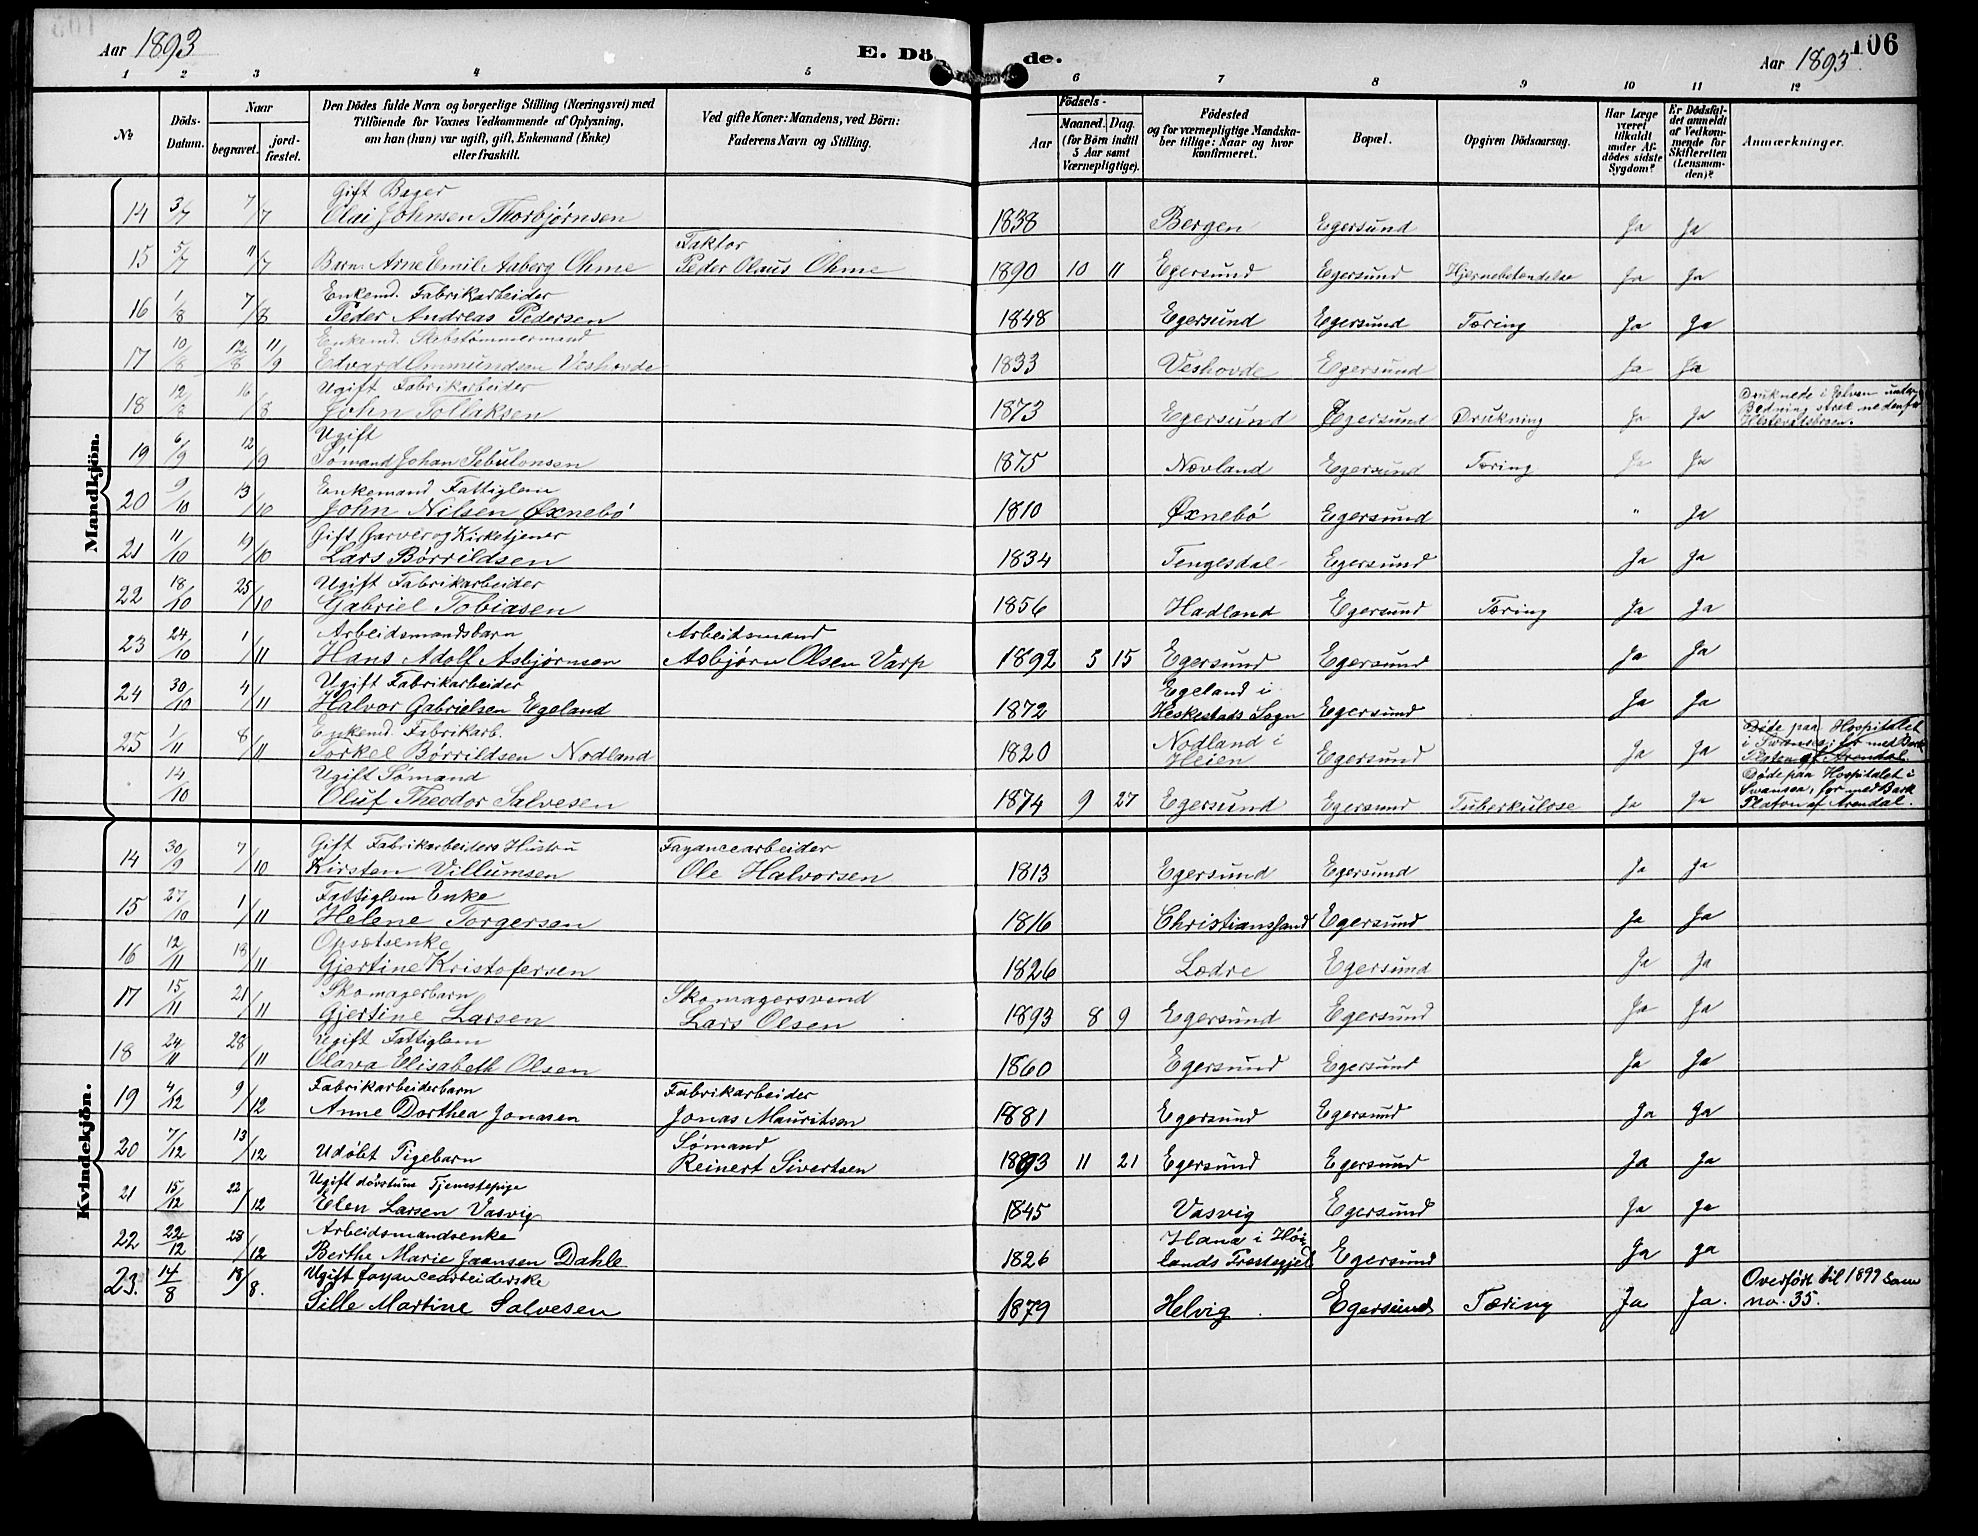 Aar 1893 E. Dö de. Aar 1893 106
1 2 3 4 5 6 7 8 9 10 11 12
No Döds-Datum. Naar begravet. jord-fæstet. Den Dödes fulde Navn og borgerlige Stilling (Næringsvei) med Tilföiende for Voxnes Vedkommende af Oplysning, om han (hun) var ugift, gift, Enkemand (Enke) eller fraskilt. Ved gifte Koner: Mandens, ved Börn: Faderens Navn og Stilling. Födsels- Aar Maaned. Dag. (for Börn indtil 5 Aar samt Værnepligtige). Födested og for værnepligtige Mandskaber tillige: Naar og hvor konfirmeret. Bopæl. Opgiven Dödsaarsag. Har Læge været tilkaldt under Afdödes sidste Sygdom? Er Dödsfaldet anmeldt af Vedkommende for Skifteretten (Lensmanden)? Anmærkninger.
Mandkjön.
Gift Bager
14 3/7 7/7 Olai Johnsen Thorbjørnsen 1838 Bergen Egersund Ja Ja
Faktor
15 5/7 11/7 Barn Arne Emil Aaberg Ohme Peder Olaus Ohme 1890 10 11 Egersund Egersund Hjernebetendelse Ja Ja
Enkemd. Fabrikarbeider
16 1/8 7/8 Peder Andreas Pedersen 1848 Egersund Egersund Tæring Ja Ja
Enkemd. Skibstømmermand
17 10/8 12/8 11/9 Edvard Ommundsen Veshovde 1833 Veshovde Egersund Ja Ja
Ugift Fabrikarbeider
18 12/8 16/8 John Tollaksen 1873 Egersund Egersund Drukning Ja Ja Druknede i Elven under Badning strax nedenfor
Ugift
19 6/9 12/9 Sømand Johan Sebulonsen 1875 Nævland Egersund Tæring Ja Ja
Enkemand Fattiglem
20 9/10 13/10 John Nilsen Øxnebø 1810 Øxnebø Egersund " Ja
Gift Garver og Kirketjener
21 11/10 19/10 Lars Børrildsen 1834 Tengesdal Egersund Ja Ja
Ugift Fabrikarbeider
22 18/10 25/10 Gabriel Tobiasen 1856 Hadland Egersund Tæring Ja Ja
Arbeidsmandsbarn Arbeidsmand
23 24/10 1/11 Hans Adolf Asbjørnsen Asbjørn Olsen Varp 1892 5 15 Egersund Egersund Ja Ja
Ugift Fabrikarbeider Egeland i
24 30/10 4/11 Halvor Gabrielsen Egeland 1872 Heskestads Sogn Egersund Ja Ja
Enkemd. Fabrikarb. Nodland i
25 1/11 8/11 Torkel Børrildsen Nodland 1820 Heien Egersund Ja Ja Døde paa Hospitalet i Swansea; for med Bark Platon af Arendal.
Ugift Sømand
14/10 Oluf Theodor Salvesen 1874 9 27 Egersund Egersund Tuberkulose Ja Ja Døde paa Hospitalet i Swansea, for med Bark Platon af Arendal.
Kvindekjön.
Gift Fabrikarbeiders Hustru Fayancearbeider
14 30/9 7/10 Kirsten Villumsen Ole Halvorsen 1813 Egersund Egersund Ja Ja
Fattiglem Enke
15 27/10 1/11 Helene Torgersen 1816 Christianssand Egersund Ja Ja
Opsætsenke
16 12/11 18/11 Gjertine Kristofersen 1826 Lædre Egersund Ja Ja
Skomagerbarn Skomagersvend
17 15/11 21/11 Gjertine Larsen Lars Olsen 1893 8 9 Egersund Egersund Ja Ja
Ugift Fattiglem
18 24/11 28/11 Olava Elisabeth Olsen 1860 Egersund Egersund Ja Ja
Fabrikarbeiderbarn Fabrikarbeider
19 4/12 9/12 Anne Dorthea Jonasen Jonas Mauritsen 1881 Egersund Egersund Ja Ja
Sømand
20 7/12 13/12 Udøbt Pigebarn Reinert Sivertsen 1893 11 21 Egersund Egersund Ja Ja
Ugift døvstum Tjenestepige
21 15/12 22/12 Elen Larsen Vasvig 1845 Vasvig Egersund Ja Ja
Arbeidsmandsenke Hana i Høi-
22 22/12 28/12 Berthe Marie Jaansen Dahle 1826 lands Præstegjeld Egersund Ja Ja
Ugift fayancearbeiderske
23. 14/8 18/8. Sille Martine Salvesen 1879 Helvig Egersund Tæring Ja Ja. Overført til 1899 som no. 35.